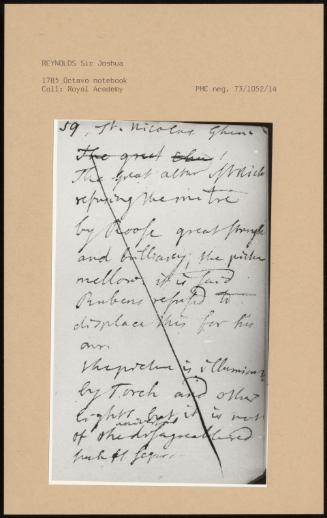 REYNOLDS Sir Joshua
1785 Octavo notebook
Coll: Royal Academy
PMC neg. 73/1052/14
59, St. Nicolas Ghent
The great
The great altar St Nich
refusing the mitre
by Roose great strength
and brilliancy, the picture
mellow. it is said
Rubens refused to
displace this for his
own
The picture is illumin
by Torch and other
lights, but it is not
of the disagreable red
such